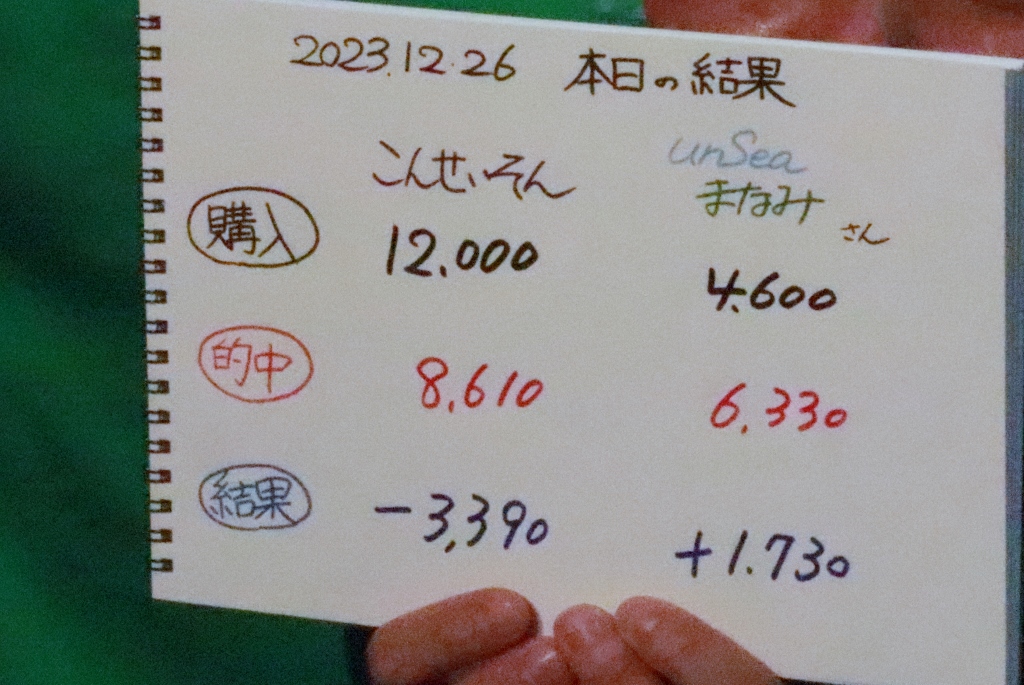 2023.12.26 本日の結果
こんせいそん unSea
まなみ さん
購入 12.000 4.600
的中 8,610 6,330
結果 -3,390 +1.730